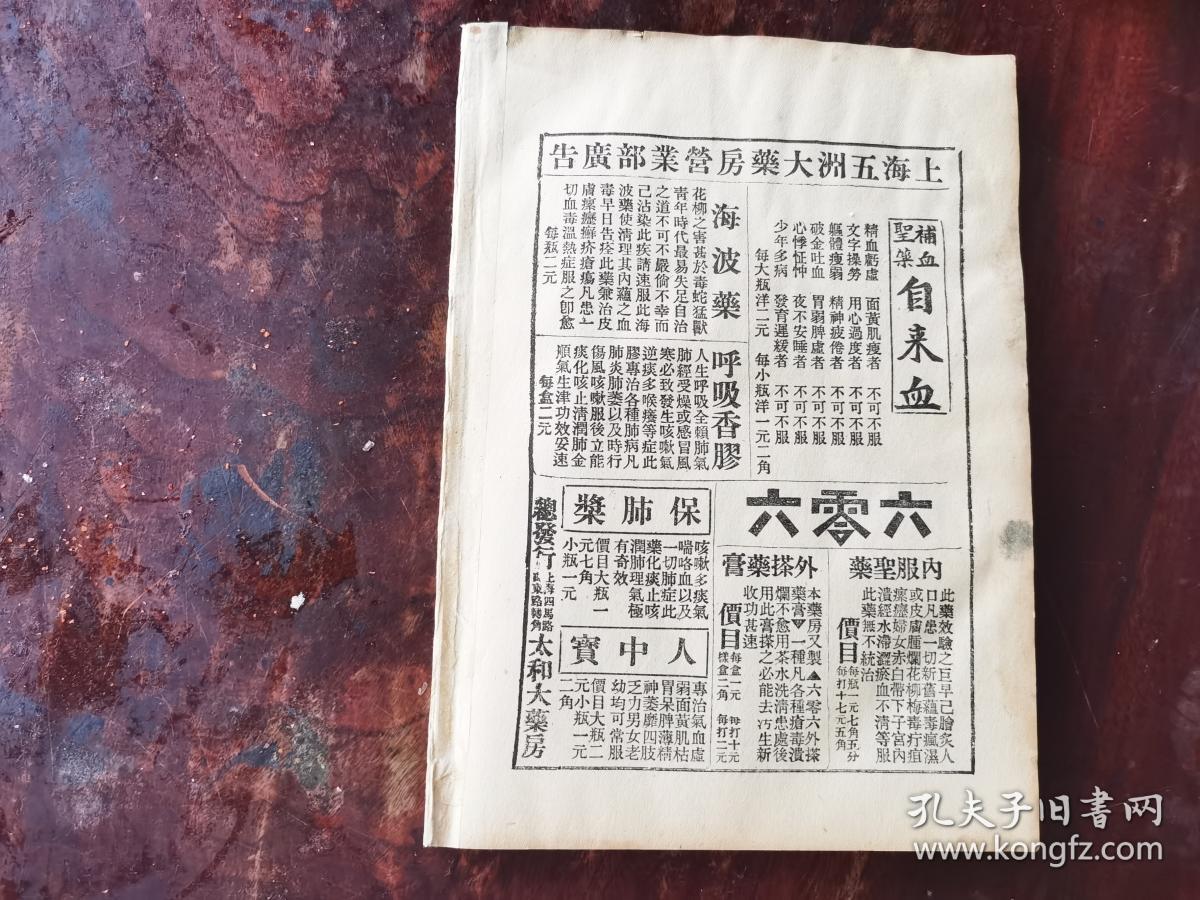 上海五洲大藥房營業部廣告
補血
聖藥
自来血
精血虧虛 面黃肌瘦者 不可不服
文字操勞 用心過度者 不可不服
軀體瘦弱 精神疲倦者 不可不服
破金吐血 胃弱脾虛者 不可不服
心悸怔忡 夜不安睡者 不可不服
少年多病 發育遲緩者 不可不服
每大瓶洋二元 每小瓶洋一元二角
海波藥
花柳之害甚於毒蛇猛獸
青年時代最易失足自治
之道不可不嚴倘不幸而
己沾染此疾請速服此海
波藥使清理其內蘊之血
毒早日告痊此藥兼治皮
膚瘰癧癬疥瘡瘍凡患一
切血毒溫熱症服之卽愈
每瓶二元
呼吸香膠
人生呼吸全賴肺氣
肺經受燥或感冒風
寒必致發生咳嗽氣
逆痰多喉癢等症此
膠專治各種肺病凡
肺炎肺萎以及時行
傷風咳嗽服後立能
痰化咳止清潤肺金
順氣生津功效妥速
每盒二元
六零六
內服聖藥
此藥效驗之巨早己膾炙人
口凡患一切新舊蘊毒瘋濕
或皮膚腫爛花柳梅毒疔疽
瘰癧婦女赤白帶下子宮內
潰經水滯澀瘀血不清等服
此藥無不統治
價目
每瓶一元七角五分
每打十七元五角
外搽藥膏
本藥房又製▲六零六外搽
藥膏▼一種凡各種瘡毒潰
爛不愈用茶水洗清患處後
用此膏搽之必能去汚生新
收功甚速
價目
每盒一元 每打十元
樣盒二角 每打二元
保肺漿
咳嗽多痰氣
喘咯血以及
一切肺症此
藥化痰止咳
潤肺理氣極
有奇效
價目大瓶一
元七角
小瓶一元
人中寶
專治氣血虛
弱面黃肌枯
胃呆脾薄精
神萎靡四肢
乏力男女老
幼均可常服
價目大瓶二
元小瓶一元
二角
總發行
上海四馬路
山東路轉角
太和大藥房
孔夫子旧書网
www.kongfz.com